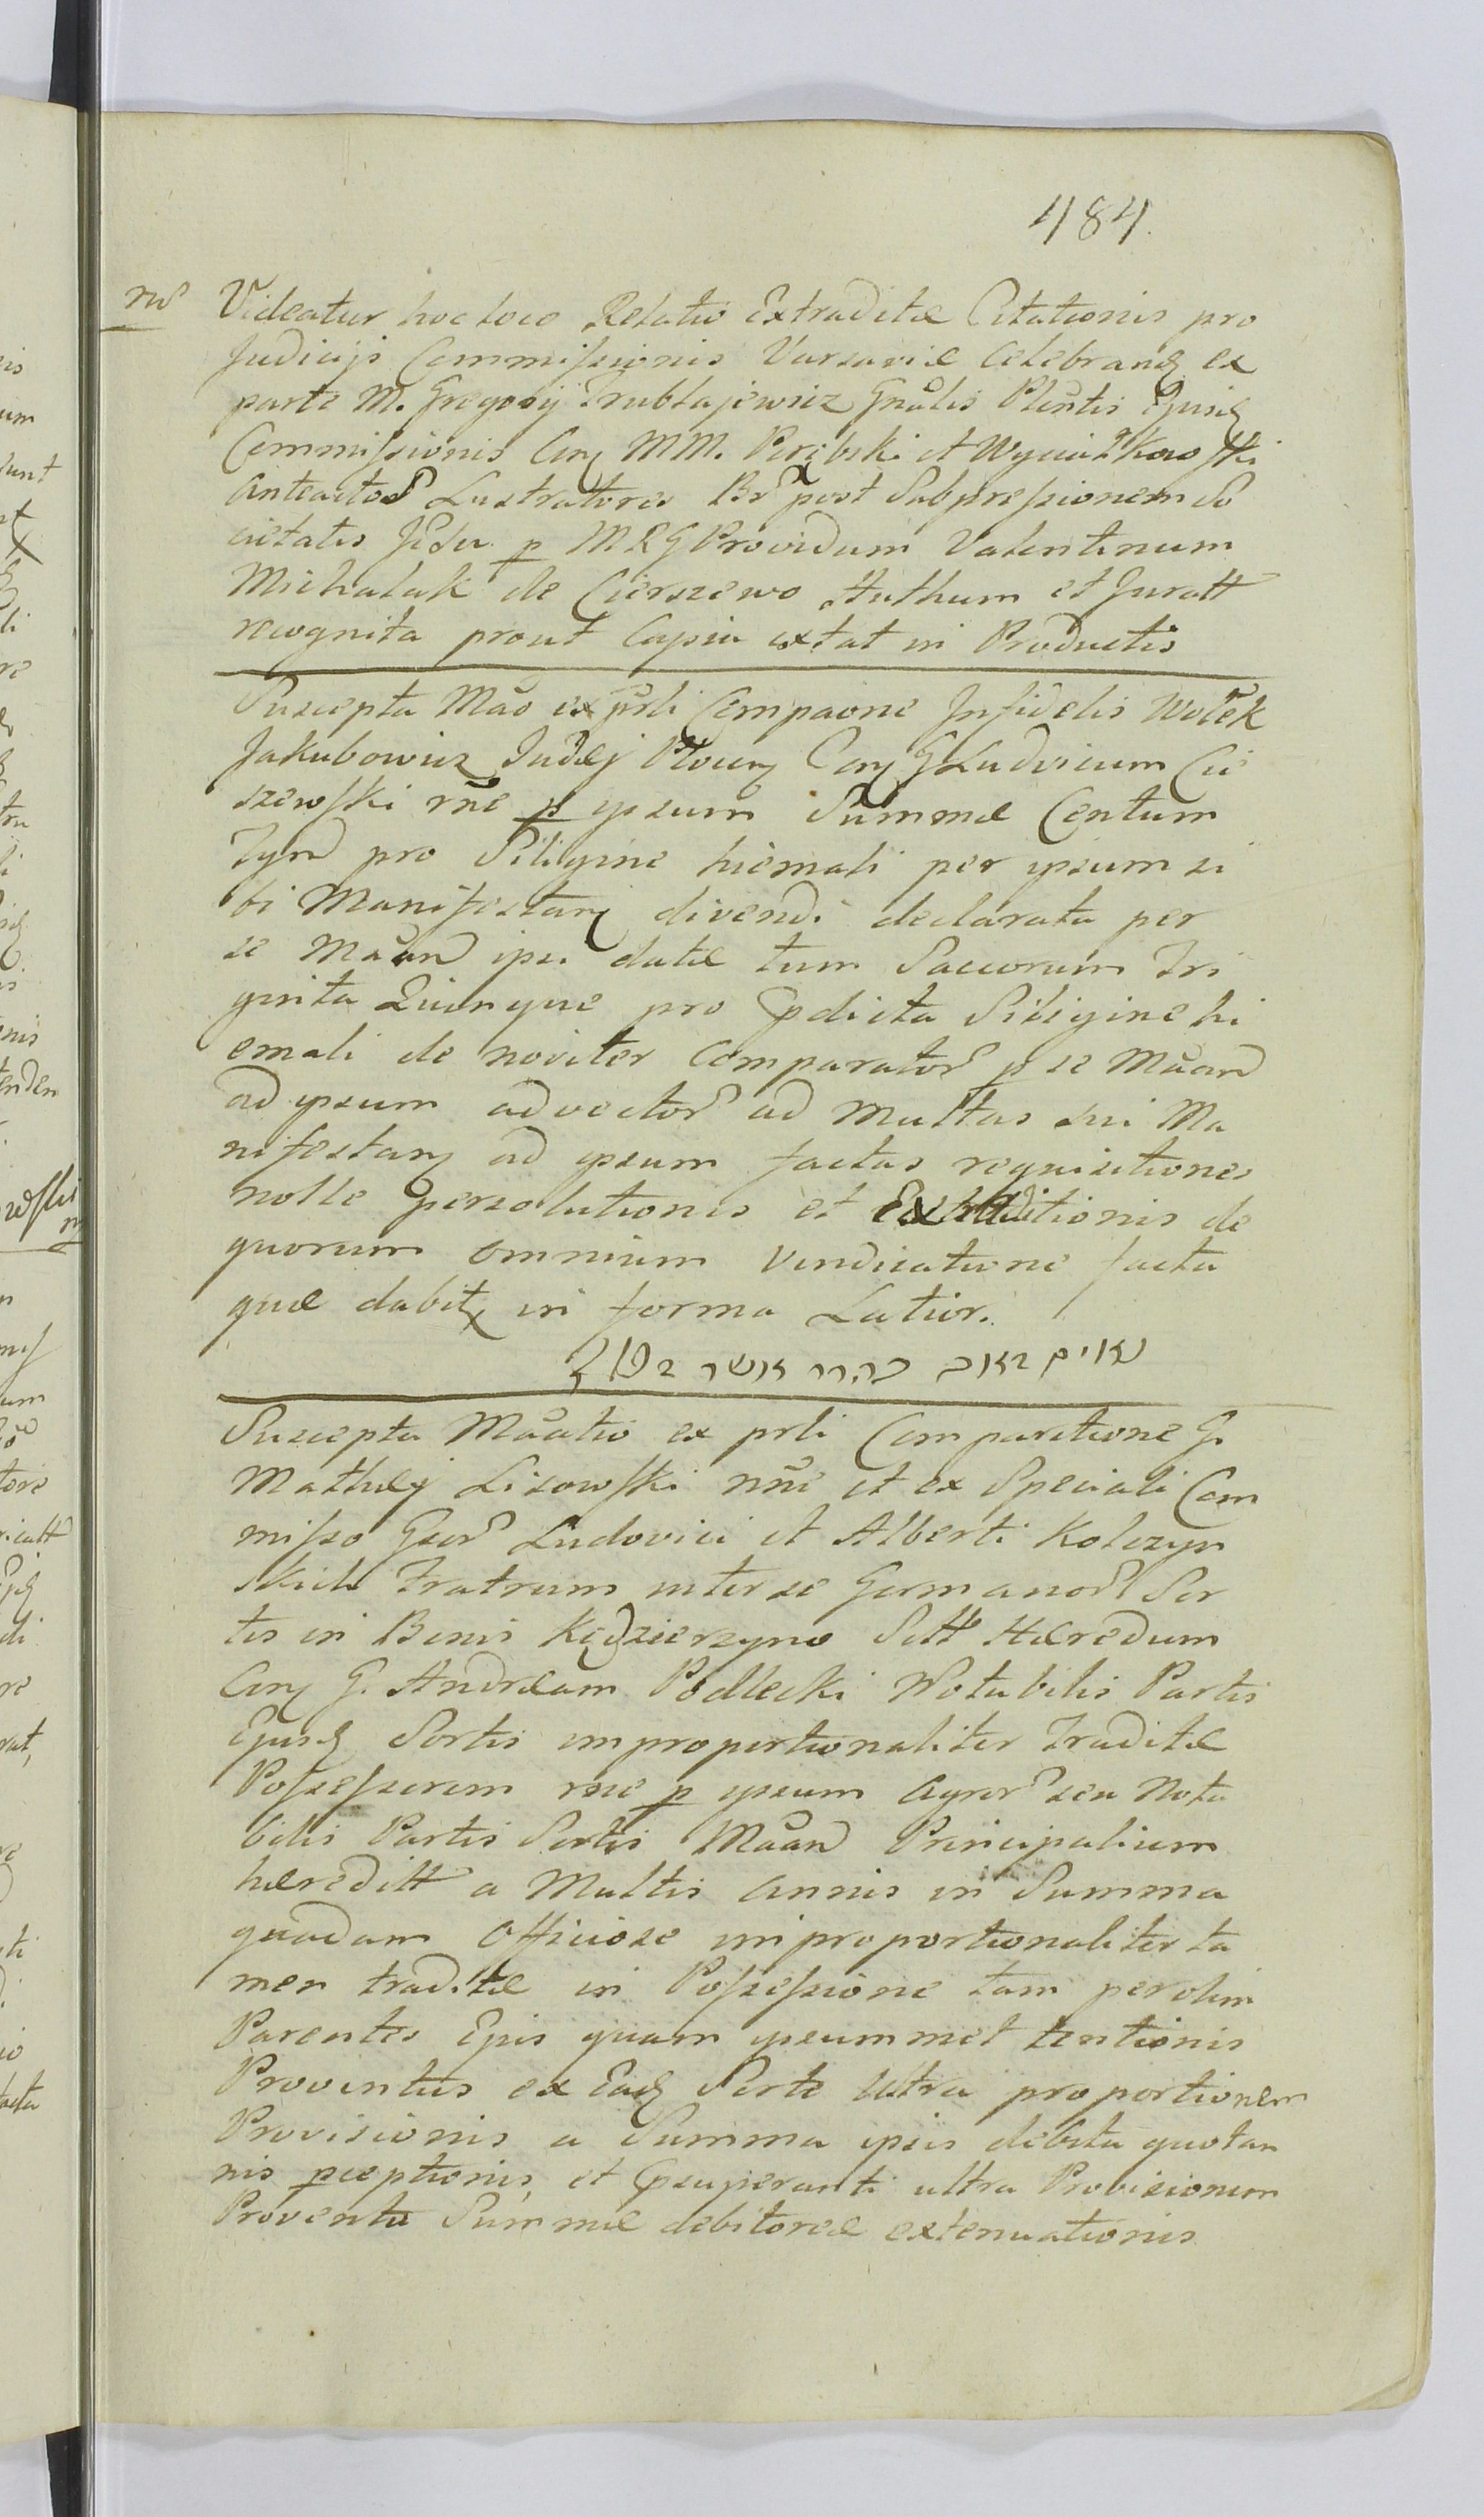 484.
Videatur hoc loco Relatio Extraditæ Citationis pro
Judicijs Commissionis Varsaviæ Celebrand ex
parte M. Gregorij Trublajewicz Gnãlis Plentis Ejusd
Commissionis Con MM. Porębski et Wyciążkowski
Anteactos Lustratores Br post Subpressionem So
cietatis Jesu p MRG Providum Valentinum
Michalak de Cierszewo Authum et Juratt
recognita prout Copia extat in Productis
Suscepta Mão ex prli Compaone Infidelis Wolek
Jakubowicz Judæj Plocen Con G Ludvicum Cie
szewski rñe p ipsum Summæ Centum
Tynf pro Siligine hiemali per ipsum si
bi Manifestan divendi declarata per
se Mãan ipsi datæ tum Saccorum Tri
ginta Quinque pro pdicta Siligine hi
emali de noviter comparator p se Mãan
ad ipsum advector ad multas sui Ma
nifestan ad ipsum factas requisitiones
nolle persolutionis et Extraditionis de
quorum omnium vindicatione facta
quæ dabit in forma Latior.
Suscepta Mãatio ex prli Comparitione G.
Mathæj Lisowski nñe et ex Speciali Com
misso Gsor Ludovici et Alberti Kolczyn
skich Fratrum inter se Germanor Sor
tis in Bonis Kędzierzyno Sitt Hæredum
Con G. Andræam Podlecki Notabilis Partis
Ejusd Sortis improportionaliter Traditæ
Possessorem rñe p ipsum Agror seu Nota
bilis Partis Sortis Mãan Principalium
hæreditt a Multis Annis in Summa
quadam Officiose improportionaliter ta
men traditæ in Possessione tam per olim
Parentes Ejus quam ipsummet tentionis
Proventus ex Ead Sorte Ultra proportionem
Provisionis a Summa ipsis debita quotan
nis pceptionis, et Exsuperanti ultra Provisionem
Proventu Summæ debitoreæ extenuationis